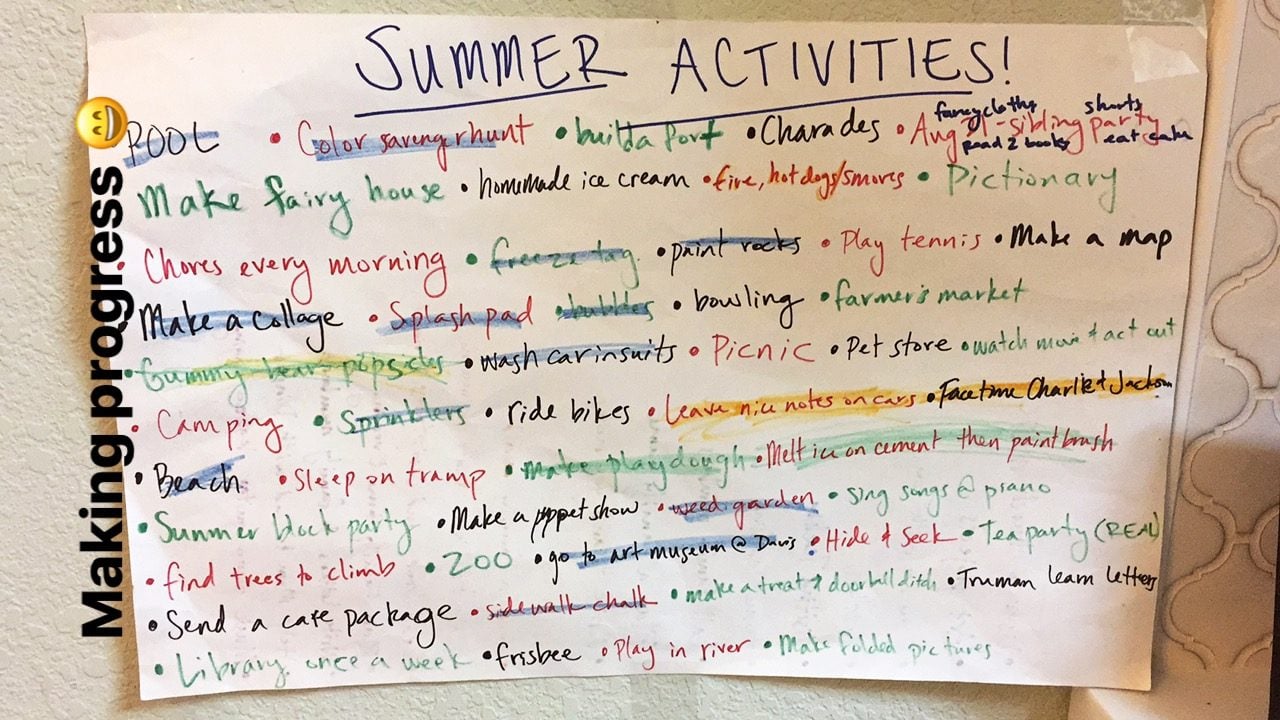 SUMMER ACTIVITIES!
fancy clothes shorts
POOL • Color savengrhunt • builda fort • Charades • Aug 21-sibling party
read 2 books eat cake
Make fairy house • homemade ice cream • fire, hotdogs/smores • Pictionary
• Chores every morning • freeze tag • paint rocks • Play tennis • Make a map
Make a collage • Splash pad • bubbles • bowling • farmer's market
• Gummy bear popsicles • wash car in suits • Picnic • Pet store • watch movie & act out
• Camping • Sprinklers • ride bikes • Leave nice notes on cars • Facetime Charlie & Jackson
• Beach • Sleep on tramp • make playdough • Melt ice on cement then paintbrush
• Summer block party • Make a puppet show • weed garden • sing songs @ piano
• find trees to climb • ZOO • go to art museum @ Davis • Hide & Seek • Tea party (REAL)
• Send a care package • sidewalk chalk • make a treat & doorbell ditch • Truman learn letters
• Library once a week • frisbee • Play in river • Make folded pictures
Making progress 😄